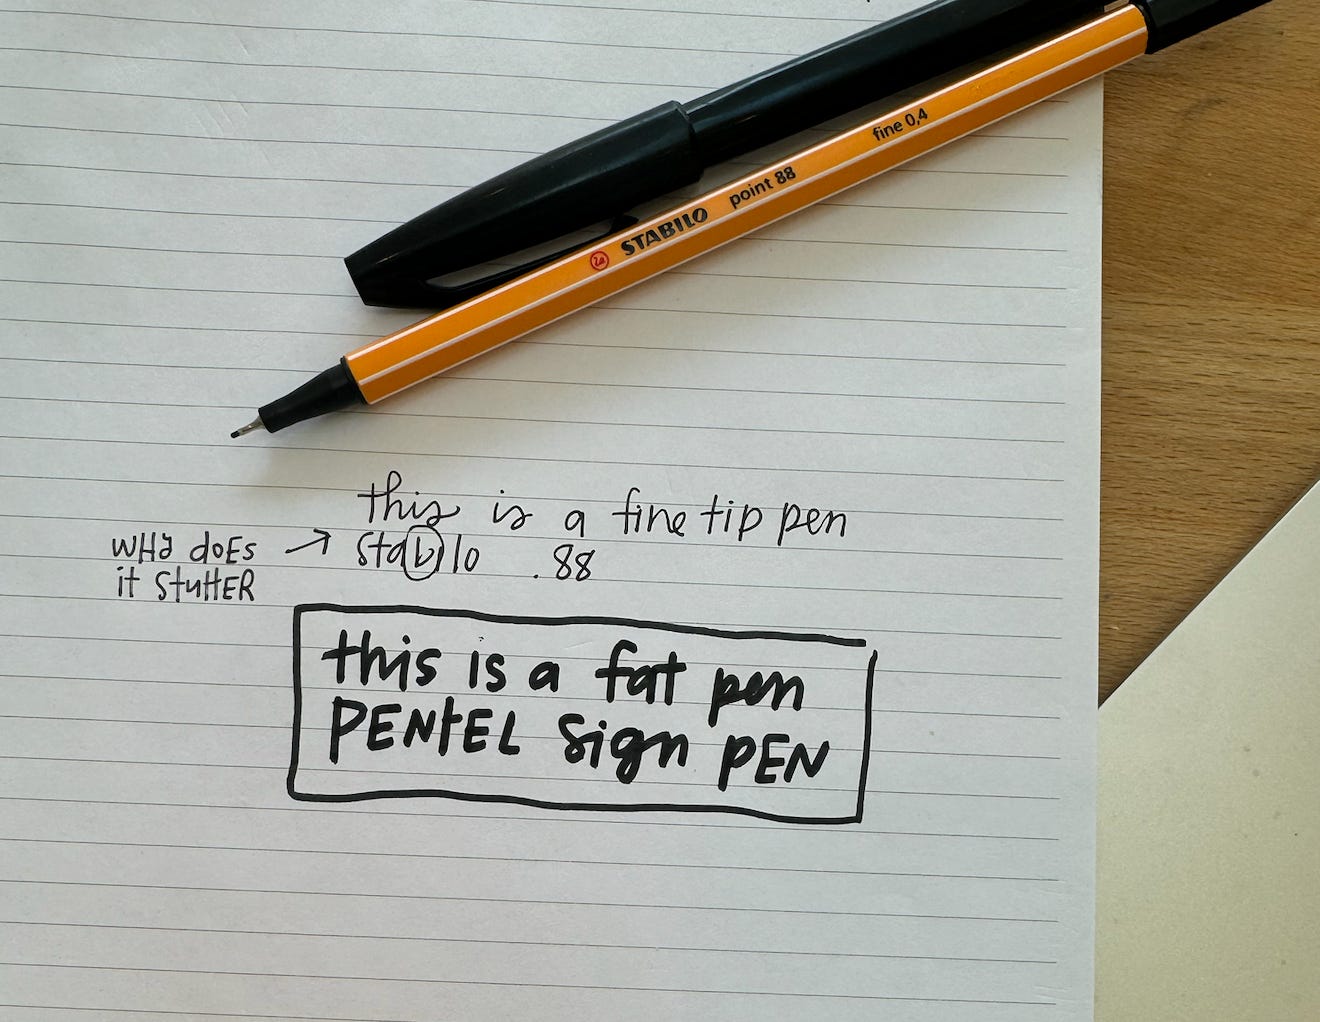 STABILO point 88 fine 0,4
this is a fine tip pen
WHY dOES → stabilo .88
it StuttER
this is a fat pen
PENtEL Sign PEN